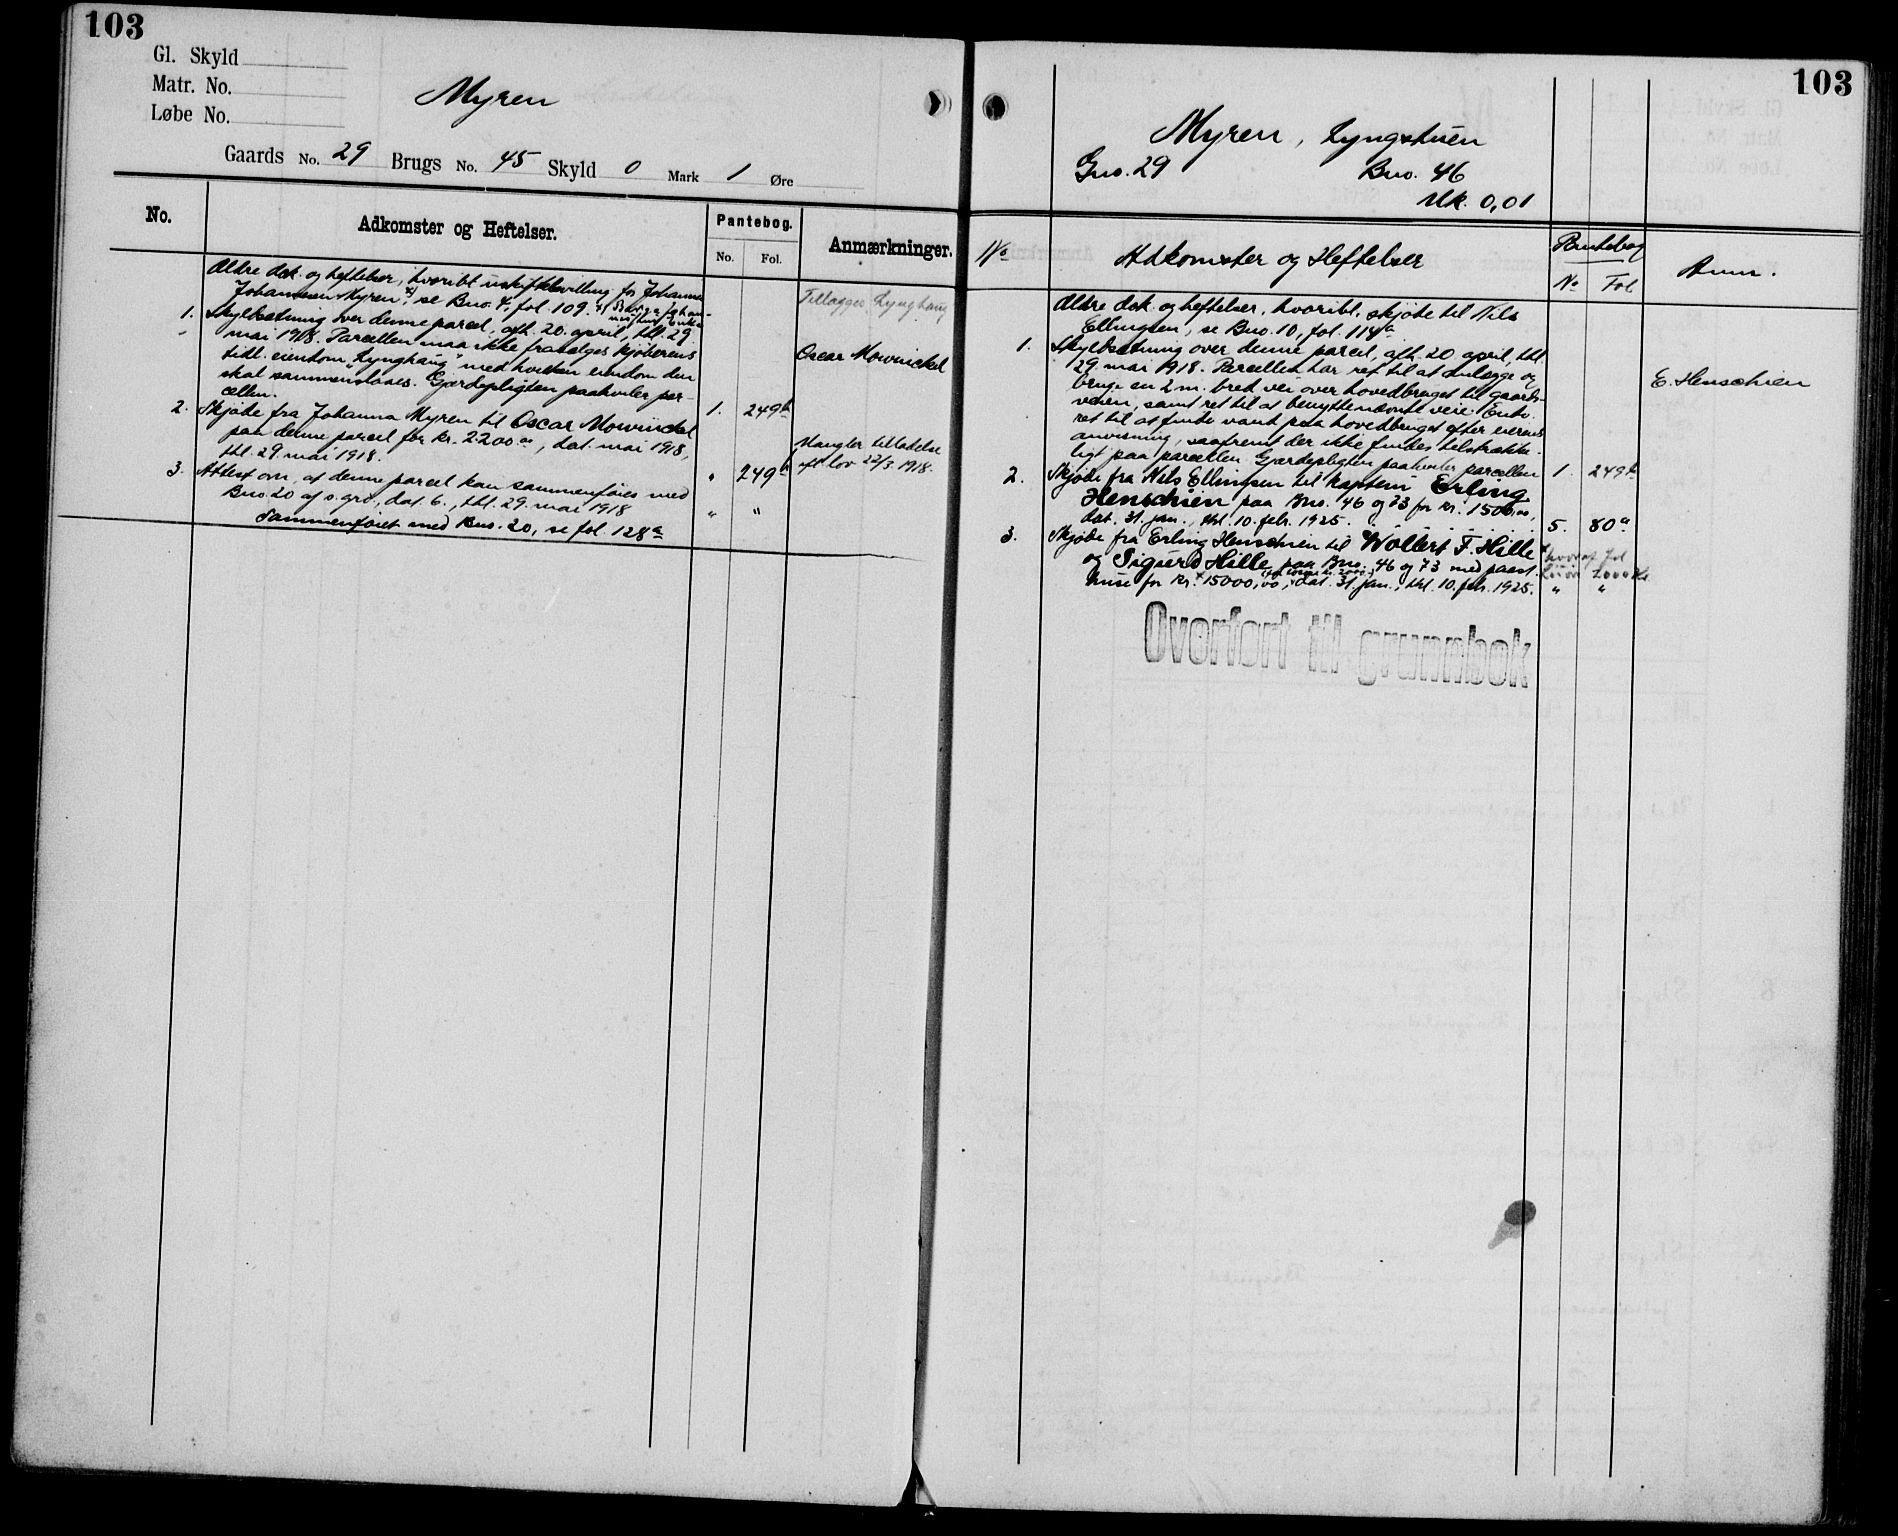 103
Gl. Skyld
Matr. No.
Løbe No.
Myren
Gaards No. 29 Brugs No. 45 Skyld 0 Mark 1 Øre
No.
Adkomster og Heftelser.
Pantebog.
No. Fol.
Anmærkninger.
Ældre dok. og heftelser, hvoribl. uskiftebevilling for Johanna
Johannesen Myren, x) se Bno. 4, fol. 109.
Tillægges Lynghaug
1. Skyldsætning over denne parcel, afh. 20. april, thl. 29.
mai 1918. Parcellen maa ikke frasælges kjøberens
tidl. eiendom "Lynghaug" med hvilken eiendom den
skal sammenslaaes. Gjærdepligten paahviler par-
cellen. 1. 249b
Oscar Mowinckel
2. Skjøde fra Johanna Myren til Oscar Mowinckel
paa denne parcel for kr. 2200,00, dat. mai 1918,
thl. 29. mai 1918. " 249b
Mangler tilladelse
eft. lov 22/3 1918.
3. Attest om, at denne parcel kan sammenføies med
Bno. 20 af s. grd., dat. 6., thl. 29. mai 1918 " "
Sammenføiet med Bno. 20, se fol. 128a
103
Myren, Lyngstuen
Gno. 29 Bno. 46
Mk. 0,01
No
Adkomster og Heftelser
Pantebog
No Fol
Anm.
Ældre dok. og heftelser, hvoribl. skjøte til Nils
Ellingsen, se Bno. 10, fol. 114a
1. Skyldsætning over denne parcel, afh. 20 april, thl.
29. mai 1918. Parcellen har ret til at anlægge og
bruge en 2 m. bred vei over hovedbruget til gaards-
veien, samt ret til at benytte nævnte veie. Enhv.
ret til at finde vand paa hovedbruget efter eierens
anvisning, saafremt der ikke findes tilstrække-
ligt paa parcellen. Gjærdepligten paahviler parcellen 1. 249b
E. Henschien
2. Skjøde fra Nils Ellingsen til kaptein Erling
Henschien paa Bno. 46 og 73 for kr. 1500,00,
dat. 31. jan., thl. 10. febr. 1925. 5. 80a
3. Skjøde fra Erling Henschien til Wollert F. Hille
og Sigurd Hille paa Bno. 46 og 73 med paast.
huse for kr. 15000,00, dat. 31. jan., thl. 10. febr. 1925. " "
hvoraf for
løsøre 2000 kr.
Overført til grunnbok